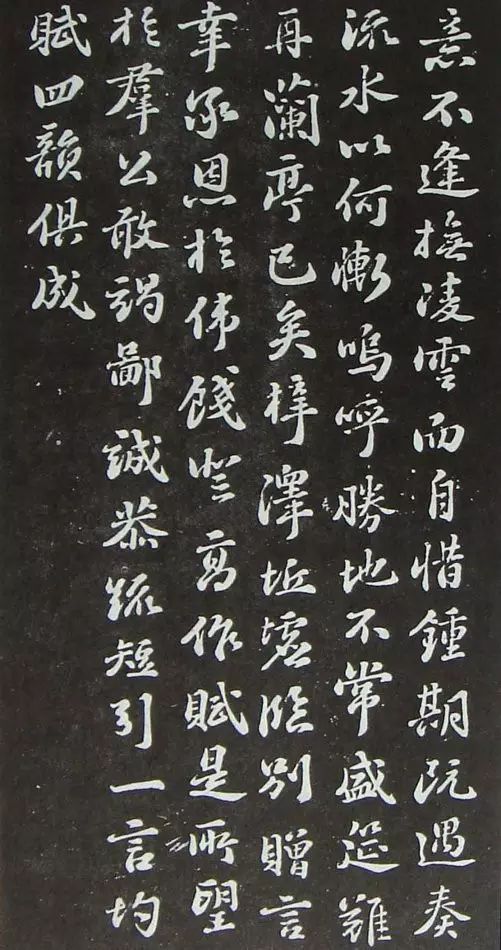 意不逢撫凌雲而自惜鍾期既遇奏
流水以何慚嗚呼勝地不常盛筵難
再蘭亭已矣梓澤坵墟臨別贈言
幸承恩於偉餞登高作賦是所望
於羣公敢竭鄙誠恭疏短引一言均
賦四韻俱成